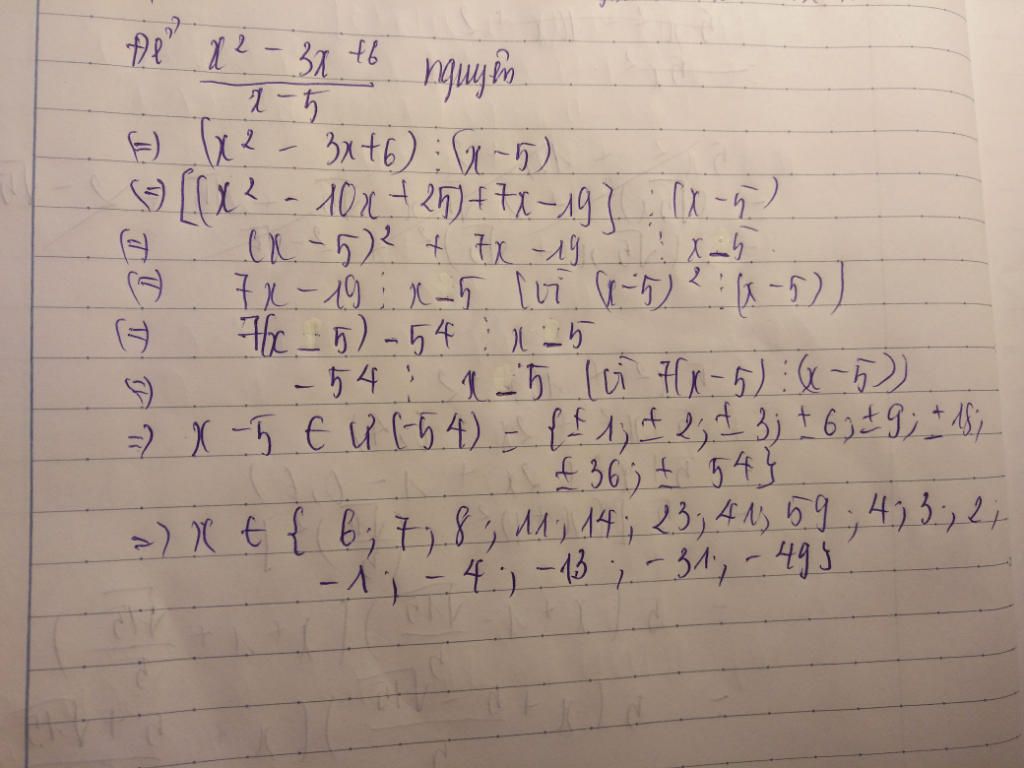 Để x² - 3x + 6 / x - 5 nguyên
(=) (x² - 3x + 6) ⋮ (x - 5)
(=) [(x² - 10x + 25) + 7x - 19] ⋮ (x - 5)
(=) (x - 5)² + 7x - 19 ⋮ x - 5
(=) 7x - 19 ⋮ x - 5 [vì (x - 5)² ⋮ (x - 5)]
(=) 7(x - 5) - 54 ⋮ x - 5
(=) - 54 ⋮ x - 5 (vì 7(x - 5) ⋮ (x - 5))
=) x - 5 ∈ Ư(-54) = {± 1; ± 2; ± 3; ± 6; ± 9; ± 18;
± 36; ± 54}
=) x ∈ { 6; 7; 8; 11; 14; 23; 41; 59; 4; 3; 2;
-1; -4; -13; -31; -49}